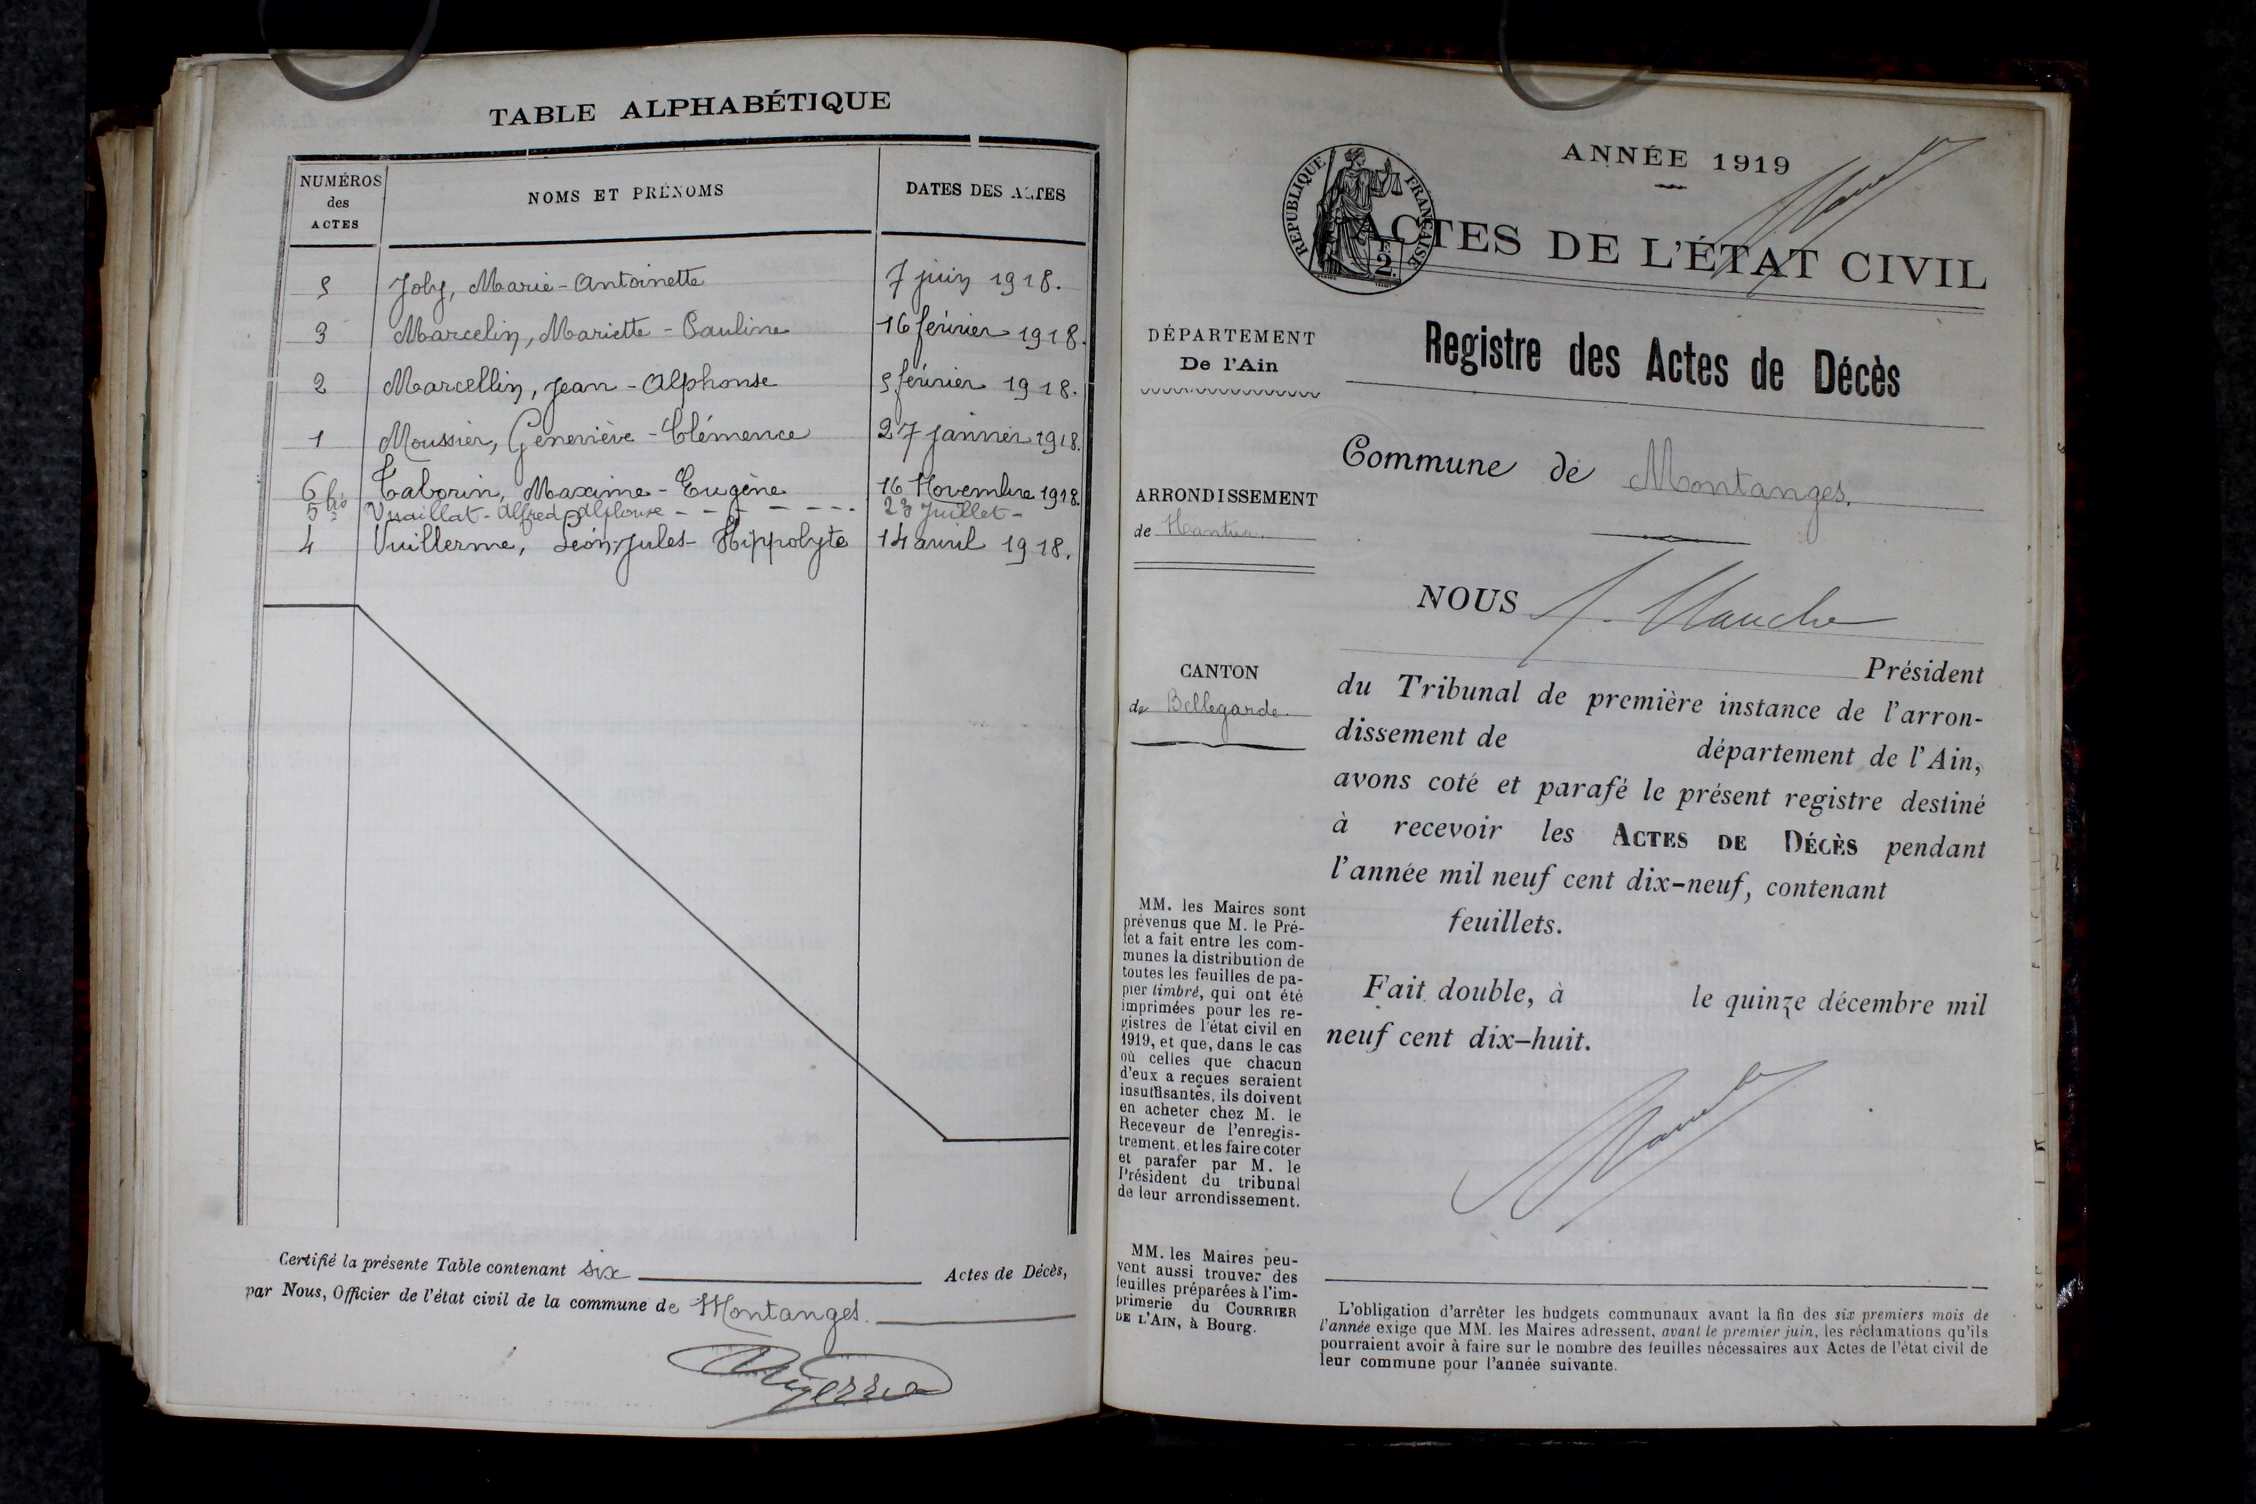 TABLE ALPHABÉTIQUE
NUMÉROS
des
ACTES
NOMS ET PRÉNOMS
DATES DES ACTES
5 Joly, Marie-Antoinette 7 juin 1918.
3 Marcelin, Mariette-Pauline 16 février 1918.
2 Marcellin, Jean-Alphonse 5 février 1918.
1 Moussier, Geneviève-Clémence 27 janvier 1918.
6 Taborin, Maxime-Eugène 16 Novembre 1918.
5 bis Vuaillat-Alfred Alphonse 23 Juillet
4 Vuillerme, Léon-Jules-Hippolyte 14 avril 1918.
Certifié la présente Table contenant six Actes de Décès,
par Nous, Officier de l'état civil de la commune de Montanges.
ANNÉE 1919
RÉPUBLIQUE FRANÇAISE
2
ACTES DE L'ÉTAT CIVIL
DÉPARTEMENT
De l'Ain
Registre des Actes de Décès
Commune de Montanges.
ARRONDISSEMENT
de Nantua.
NOUS
Président
CANTON
de Bellegarde.
du Tribunal de première instance de l'arron-
dissement de département de l'Ain,
avons coté et parafé le présent registre destiné
à recevoir les ACTES DE DÉCÈS pendant
l'année mil neuf cent dix-neuf, contenant
feuillets.
Fait double, à le quinze décembre mil
neuf cent dix-huit.
MM. les Maires sont
prévenus que M. le Pré-
fet a fait entre les com-
munes la distribution de
toutes les feuilles de pa-
pier timbré, qui ont été
imprimées pour les re-
gistres de l'état civil en
1919, et que, dans le cas
où celles que chacun
d'eux a reçues seraient
insuffisantes, ils doivent
en acheter chez M. le
Receveur de l'enregis-
trement, et les faire coter
et parafer par M. le
Président du tribunal
de leur arrondissement.
MM. les Maires peu-
vent aussi trouver des
feuilles préparées à l'im-
primerie du COURRIER
DE L'AIN, à Bourg.
L'obligation d'arrêter les budgets communaux avant la fin des six premiers mois de
l'année exige que MM. les Maires adressent, avant le premier juin, les réclamations qu'ils
pourraient avoir à faire sur le nombre des feuilles nécessaires aux Actes de l'état civil de
leur commune pour l'année suivante.